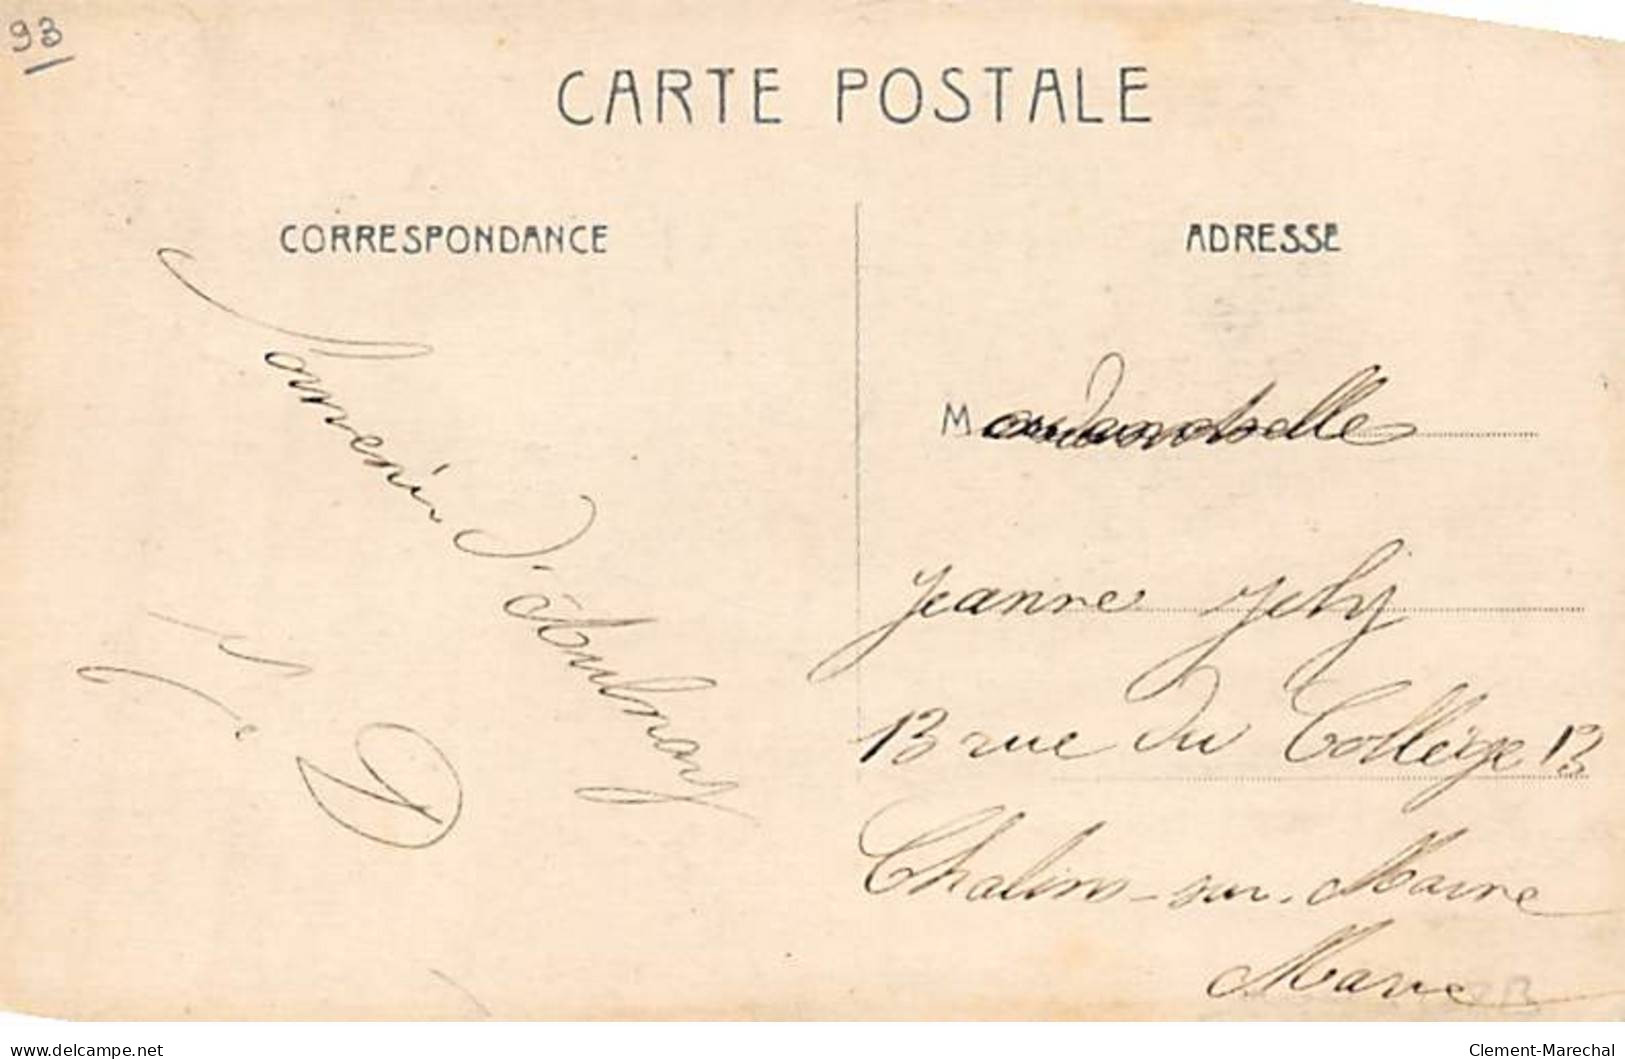 93
CARTE POSTALE
CORRESPONDANCE
Souvenir d'Aulnay
ADRESSE
Mademoiselle
Jeanne
13 rue du Collège 13
Chalons-sur-Marne
Marne
www.delcampe.net
Clement-Marechal